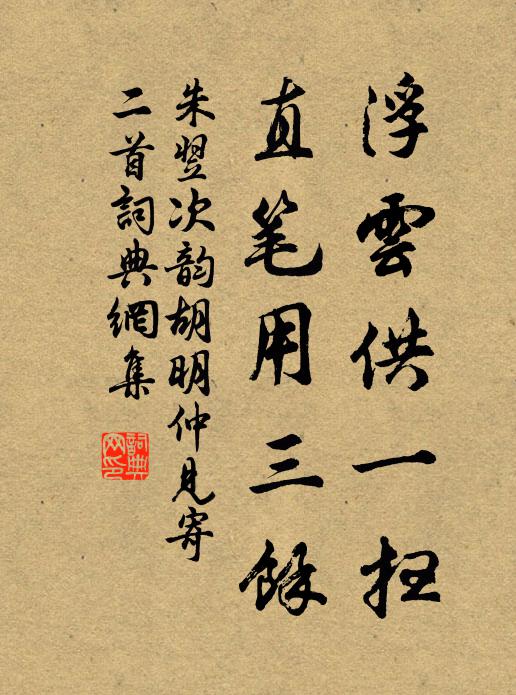 浮雲供一扫
直笔用三餘
朱翌次韵胡明仲見寄
二首詞典網集
詞典
网印